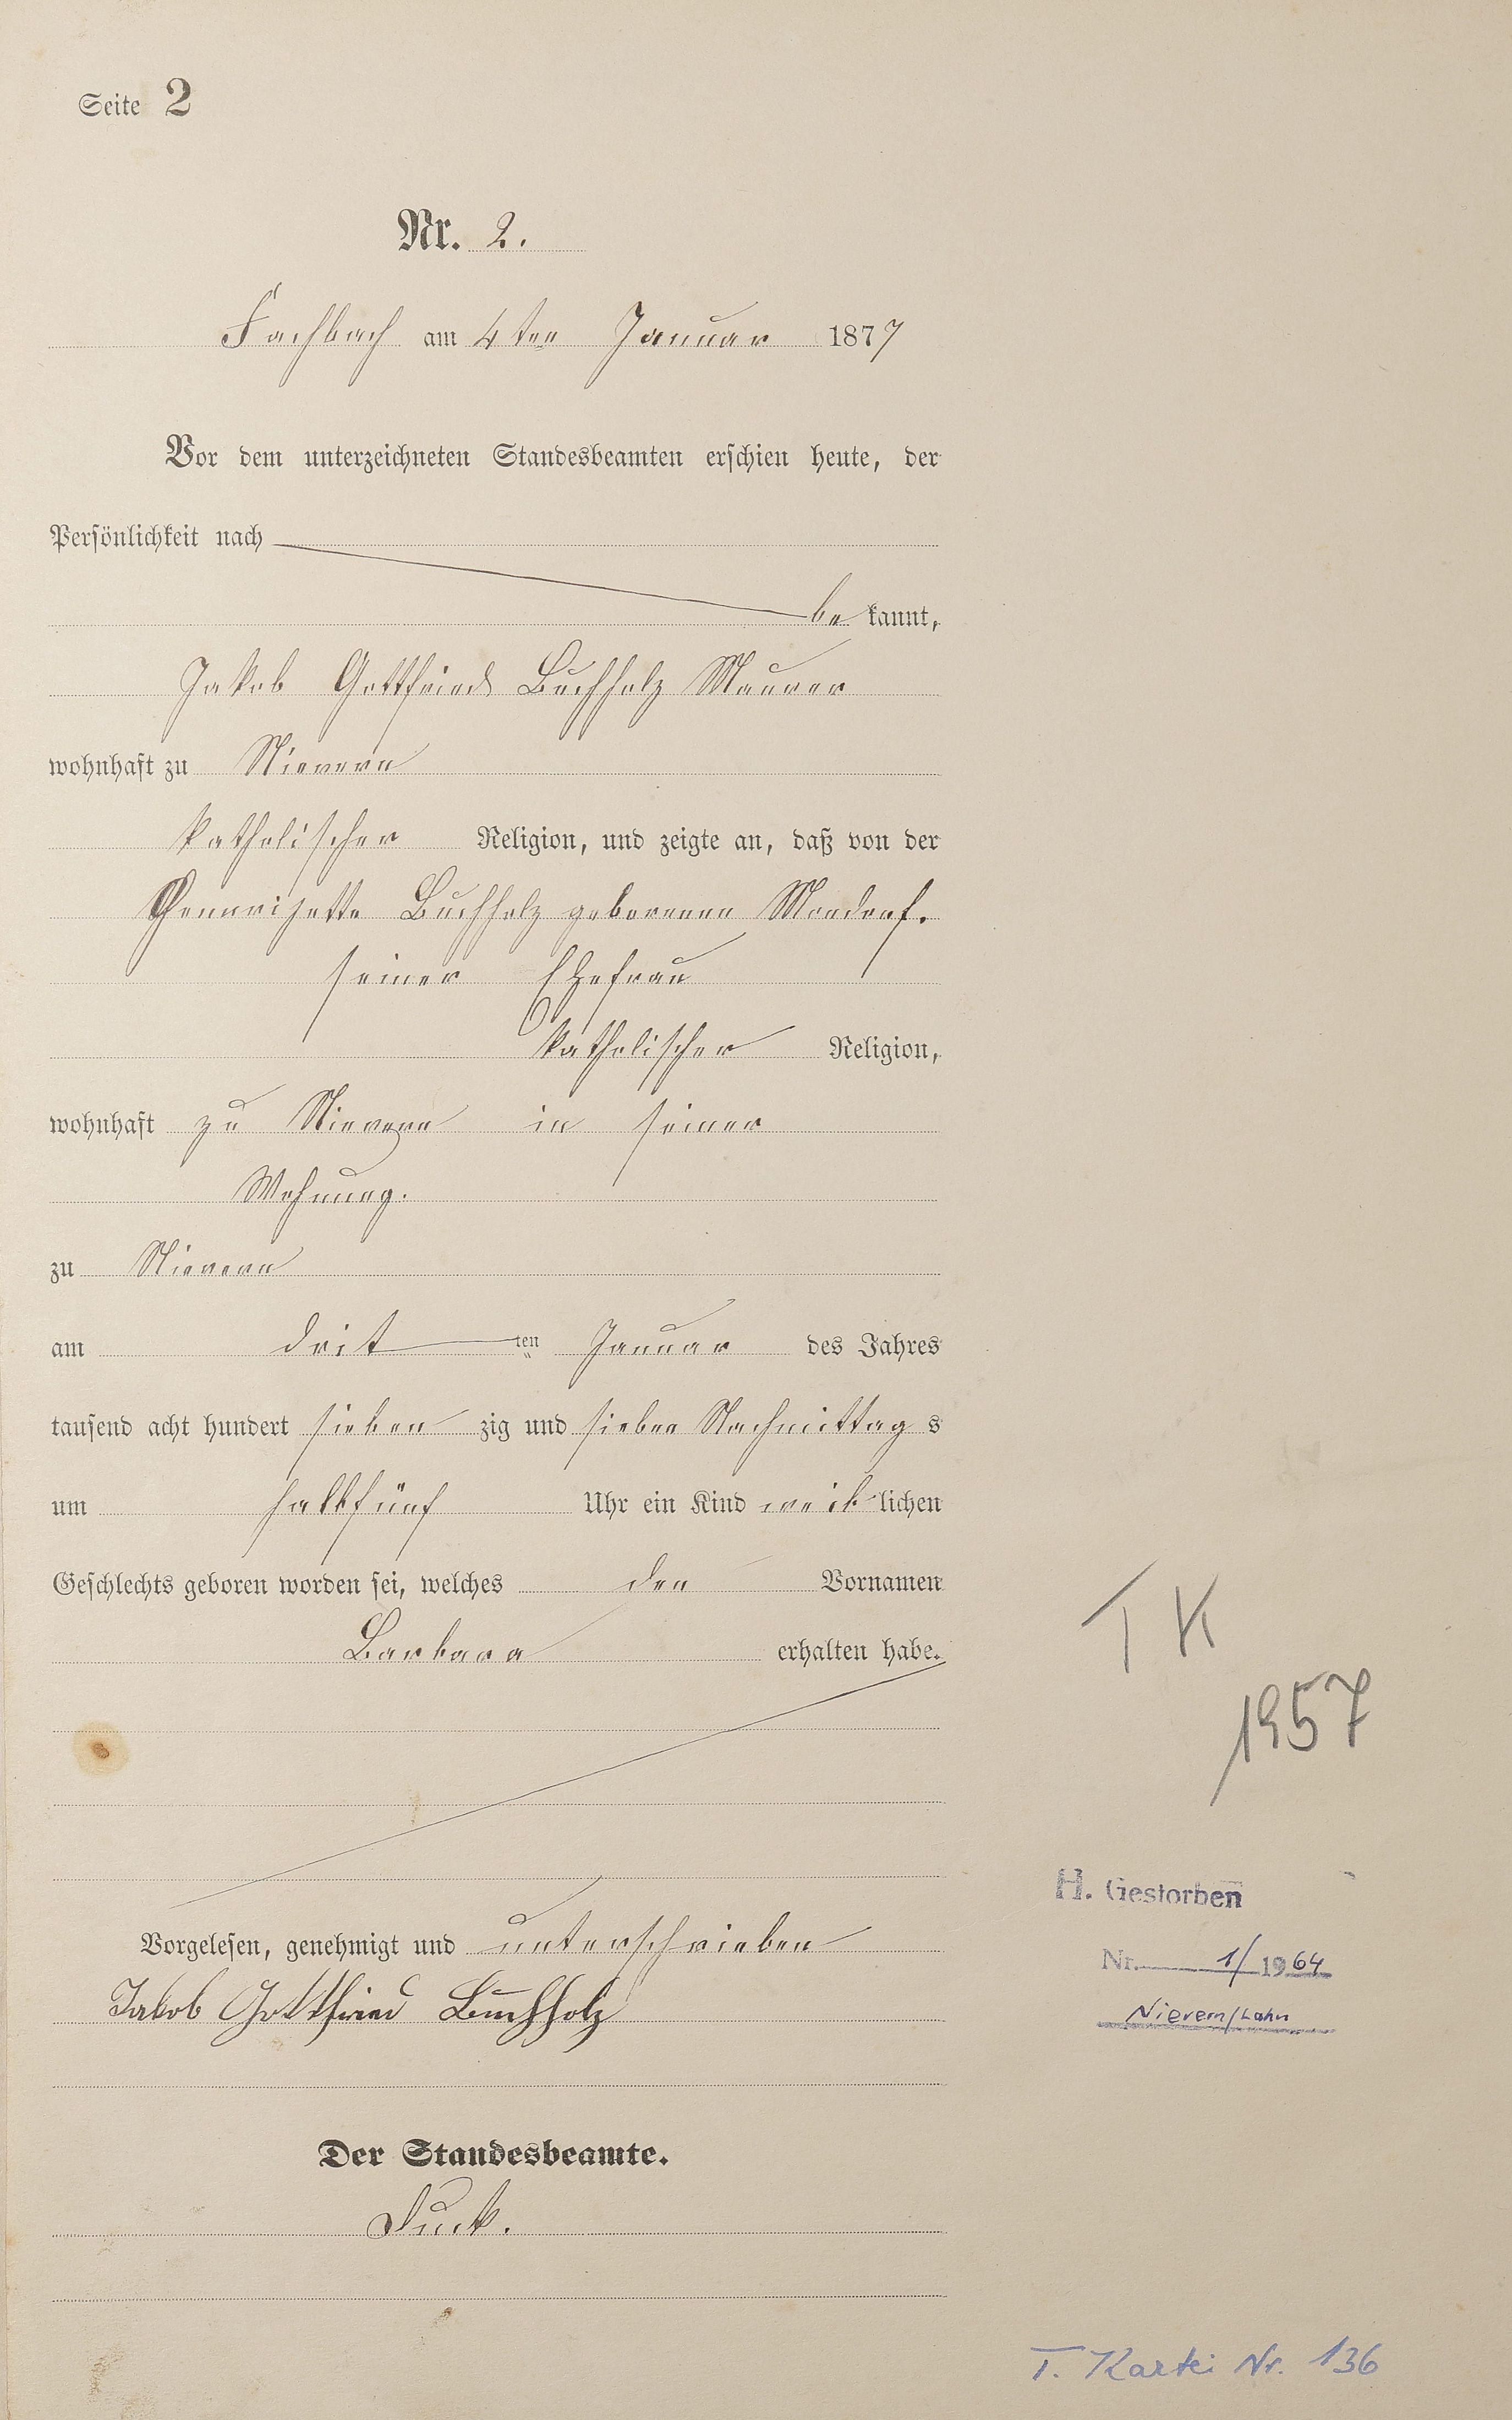 Seite 2
Nr. 2.
Fachbach am 4ten Januar 1877
Vor dem unterzeichneten Standesbeamten erschien heute, der
Persönlichkeit nach
be kannt,
Jakob Gottfried Buchholz Maurer
wohnhaft zu Nievern
katholischer Religion, und zeigte an, daß von der
Buchholz geborenen
seiner Ehefrau
katholischer Religion,
wohnhaft zu Nievern in seiner
Wohnung.
zu Nievern
am drit ten Januar des Jahres
tausend acht hundert sieben zig und sieben Nachmittag s
um halbfünf Uhr ein Kind weib lichen
Geschlechts geboren worden sei, welches den Vornamen
Barbara erhalten habe.
Vorgelesen, genehmigt und unterschrieben
Jakob Gottfried Buchholz
Der Standesbeamte.
T K
1957
H. Gestorben
Nr. 1/1964
Nievern/Lahn
T. Kartei Nr. 136